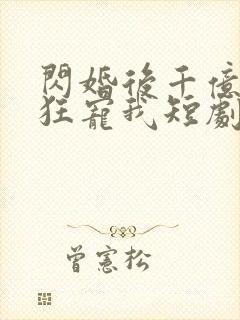 閃婚後千億
狂寵我短劇
曾憲松